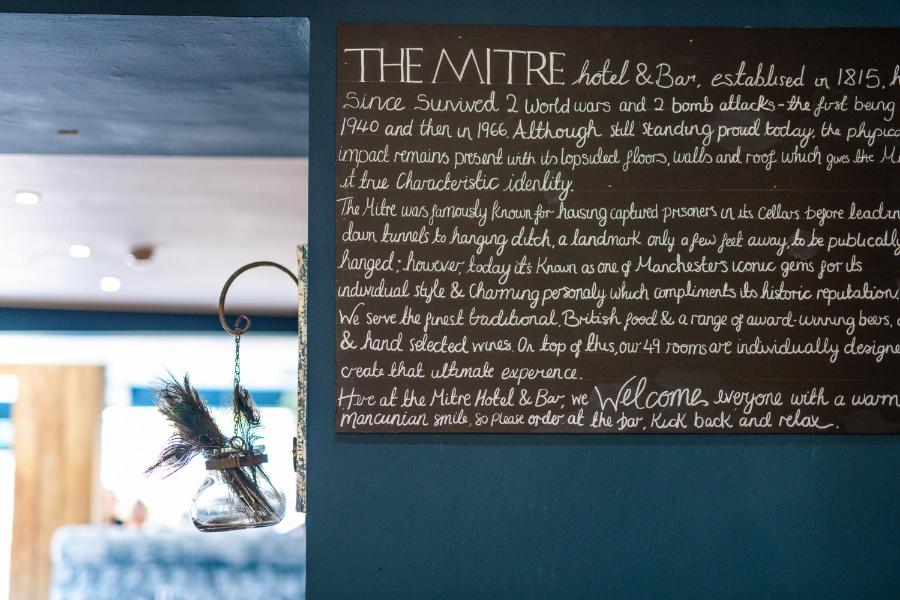 THE MITRE hotel & Bar, establised in 1815, h
Since Survived 2 World wars and 2 bomb attacks - the first being
1940 and then in 1966. Although still standing proud today, the physica
impact remains present with its lopsided floors, walls and roof which gives the M
it true Characteristic idenlity.
The Mitre was famously known for housing captured prisoners in its Cellars before leadin
down tunnels to hanging ditch, a landmark only a few feet away, to be publically
hanged; however, today it's Known as one of Manchesters iconic gems for its
individual style & Charming personaly which compliments its historic reputation.
We serve the finest traditional, British food & a range of award-winning beers,
& hand selected wines. On top of this, our 49 rooms are individually designe
create that ultimate experience.
Here at the Mitre Hotel & Bar, we Welcome everyone with a warm
mancunian smile, so please order at the bar, Kick back and relax.